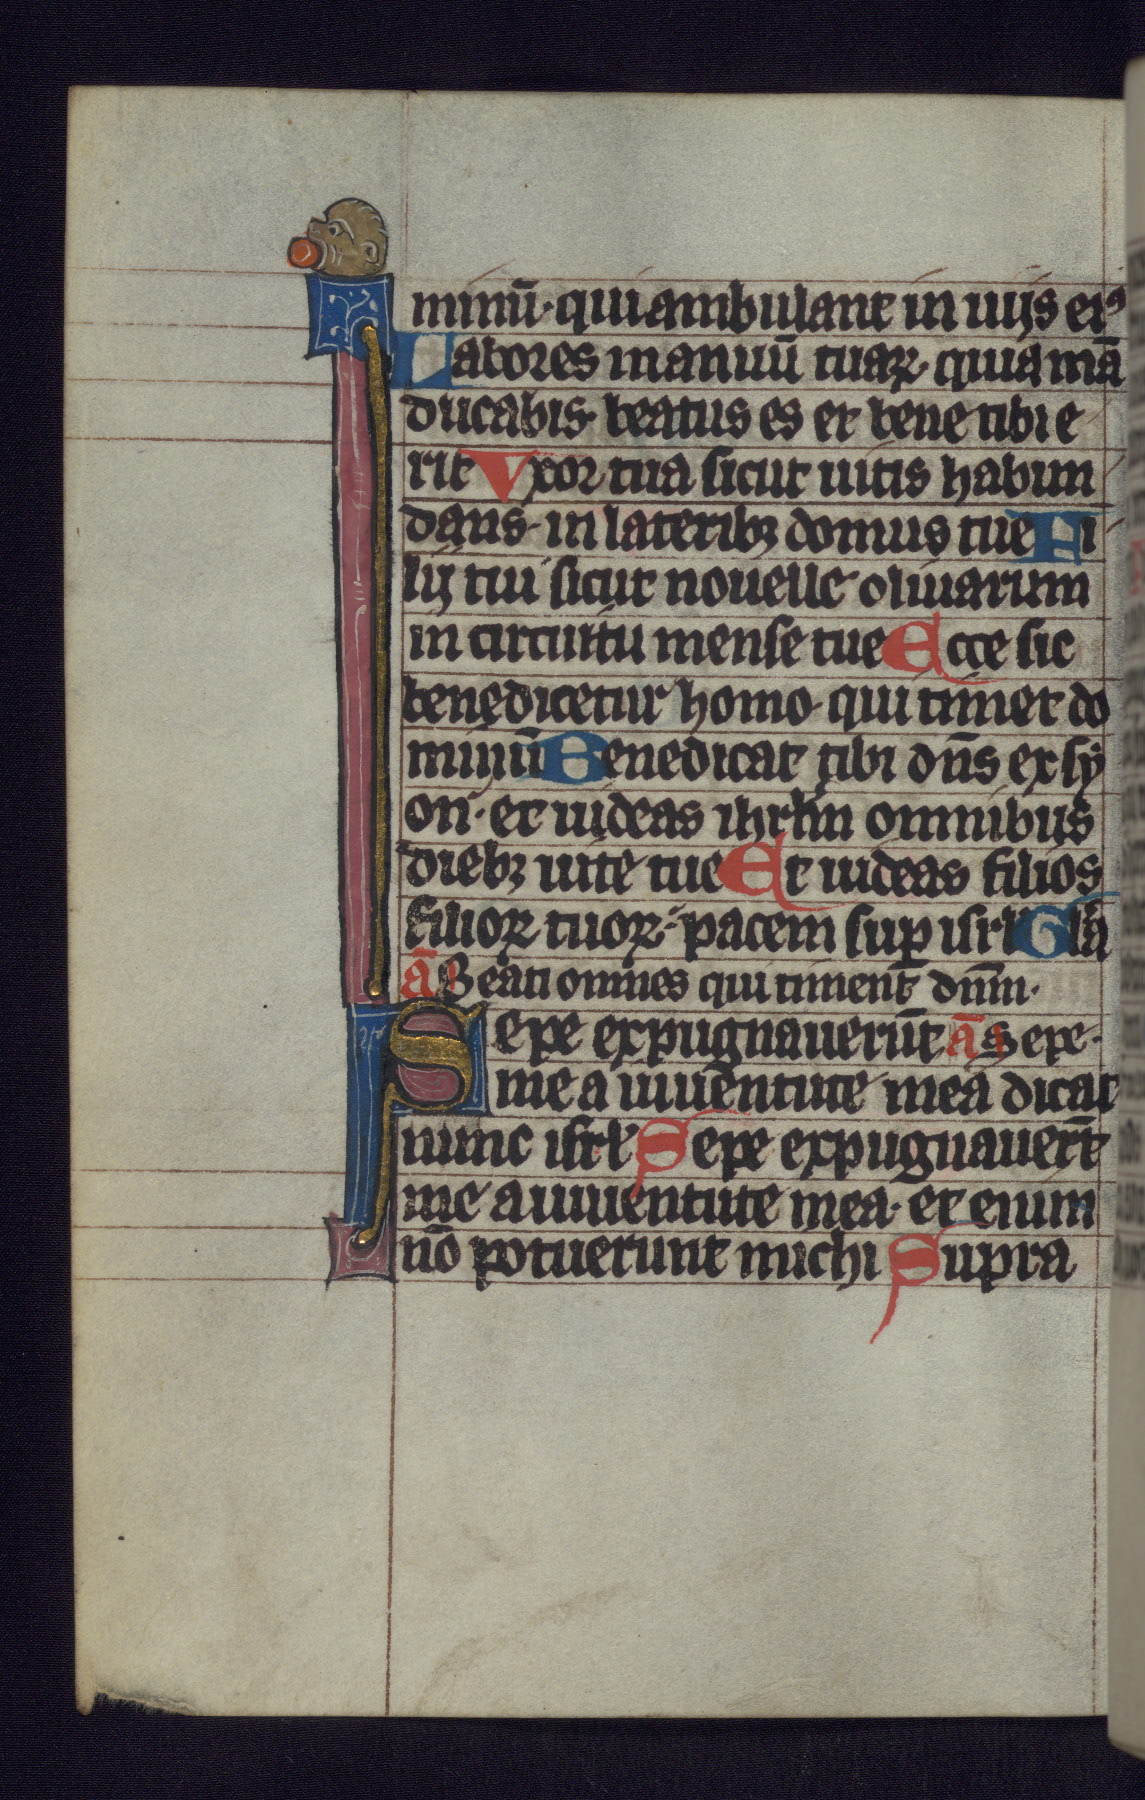 minū· qui ambulant in uijs eiꝰ
Labores manuū tuaꝝ· quia mā
ducabis· beatus es et bene tibi e
rit Vxor tua sicut uitis habun
dans· in lateribꝫ domus tue Fi
lij tui sicut nouelle oliuarum
in circuitu mense tue Ecce sic
benedicetur homo· qui timet do
minū Benedicat tibi dn̄s ex sy
on· et uideas ihrlm̄ omnibus
diebꝫ uite tue Et uideas filios
filioꝝ tuoꝝ· pacem suꝑ isrl̄ Gl̄a
ā Beati omnes qui timent dn̄m·
Sepe expugnauerūt ā Sepe·
me a iuuentute mea dicat
nunc isrl̄ Sepe expugnauerūt
me a iuuentute mea· et enim
nō potuerunt michi Supra